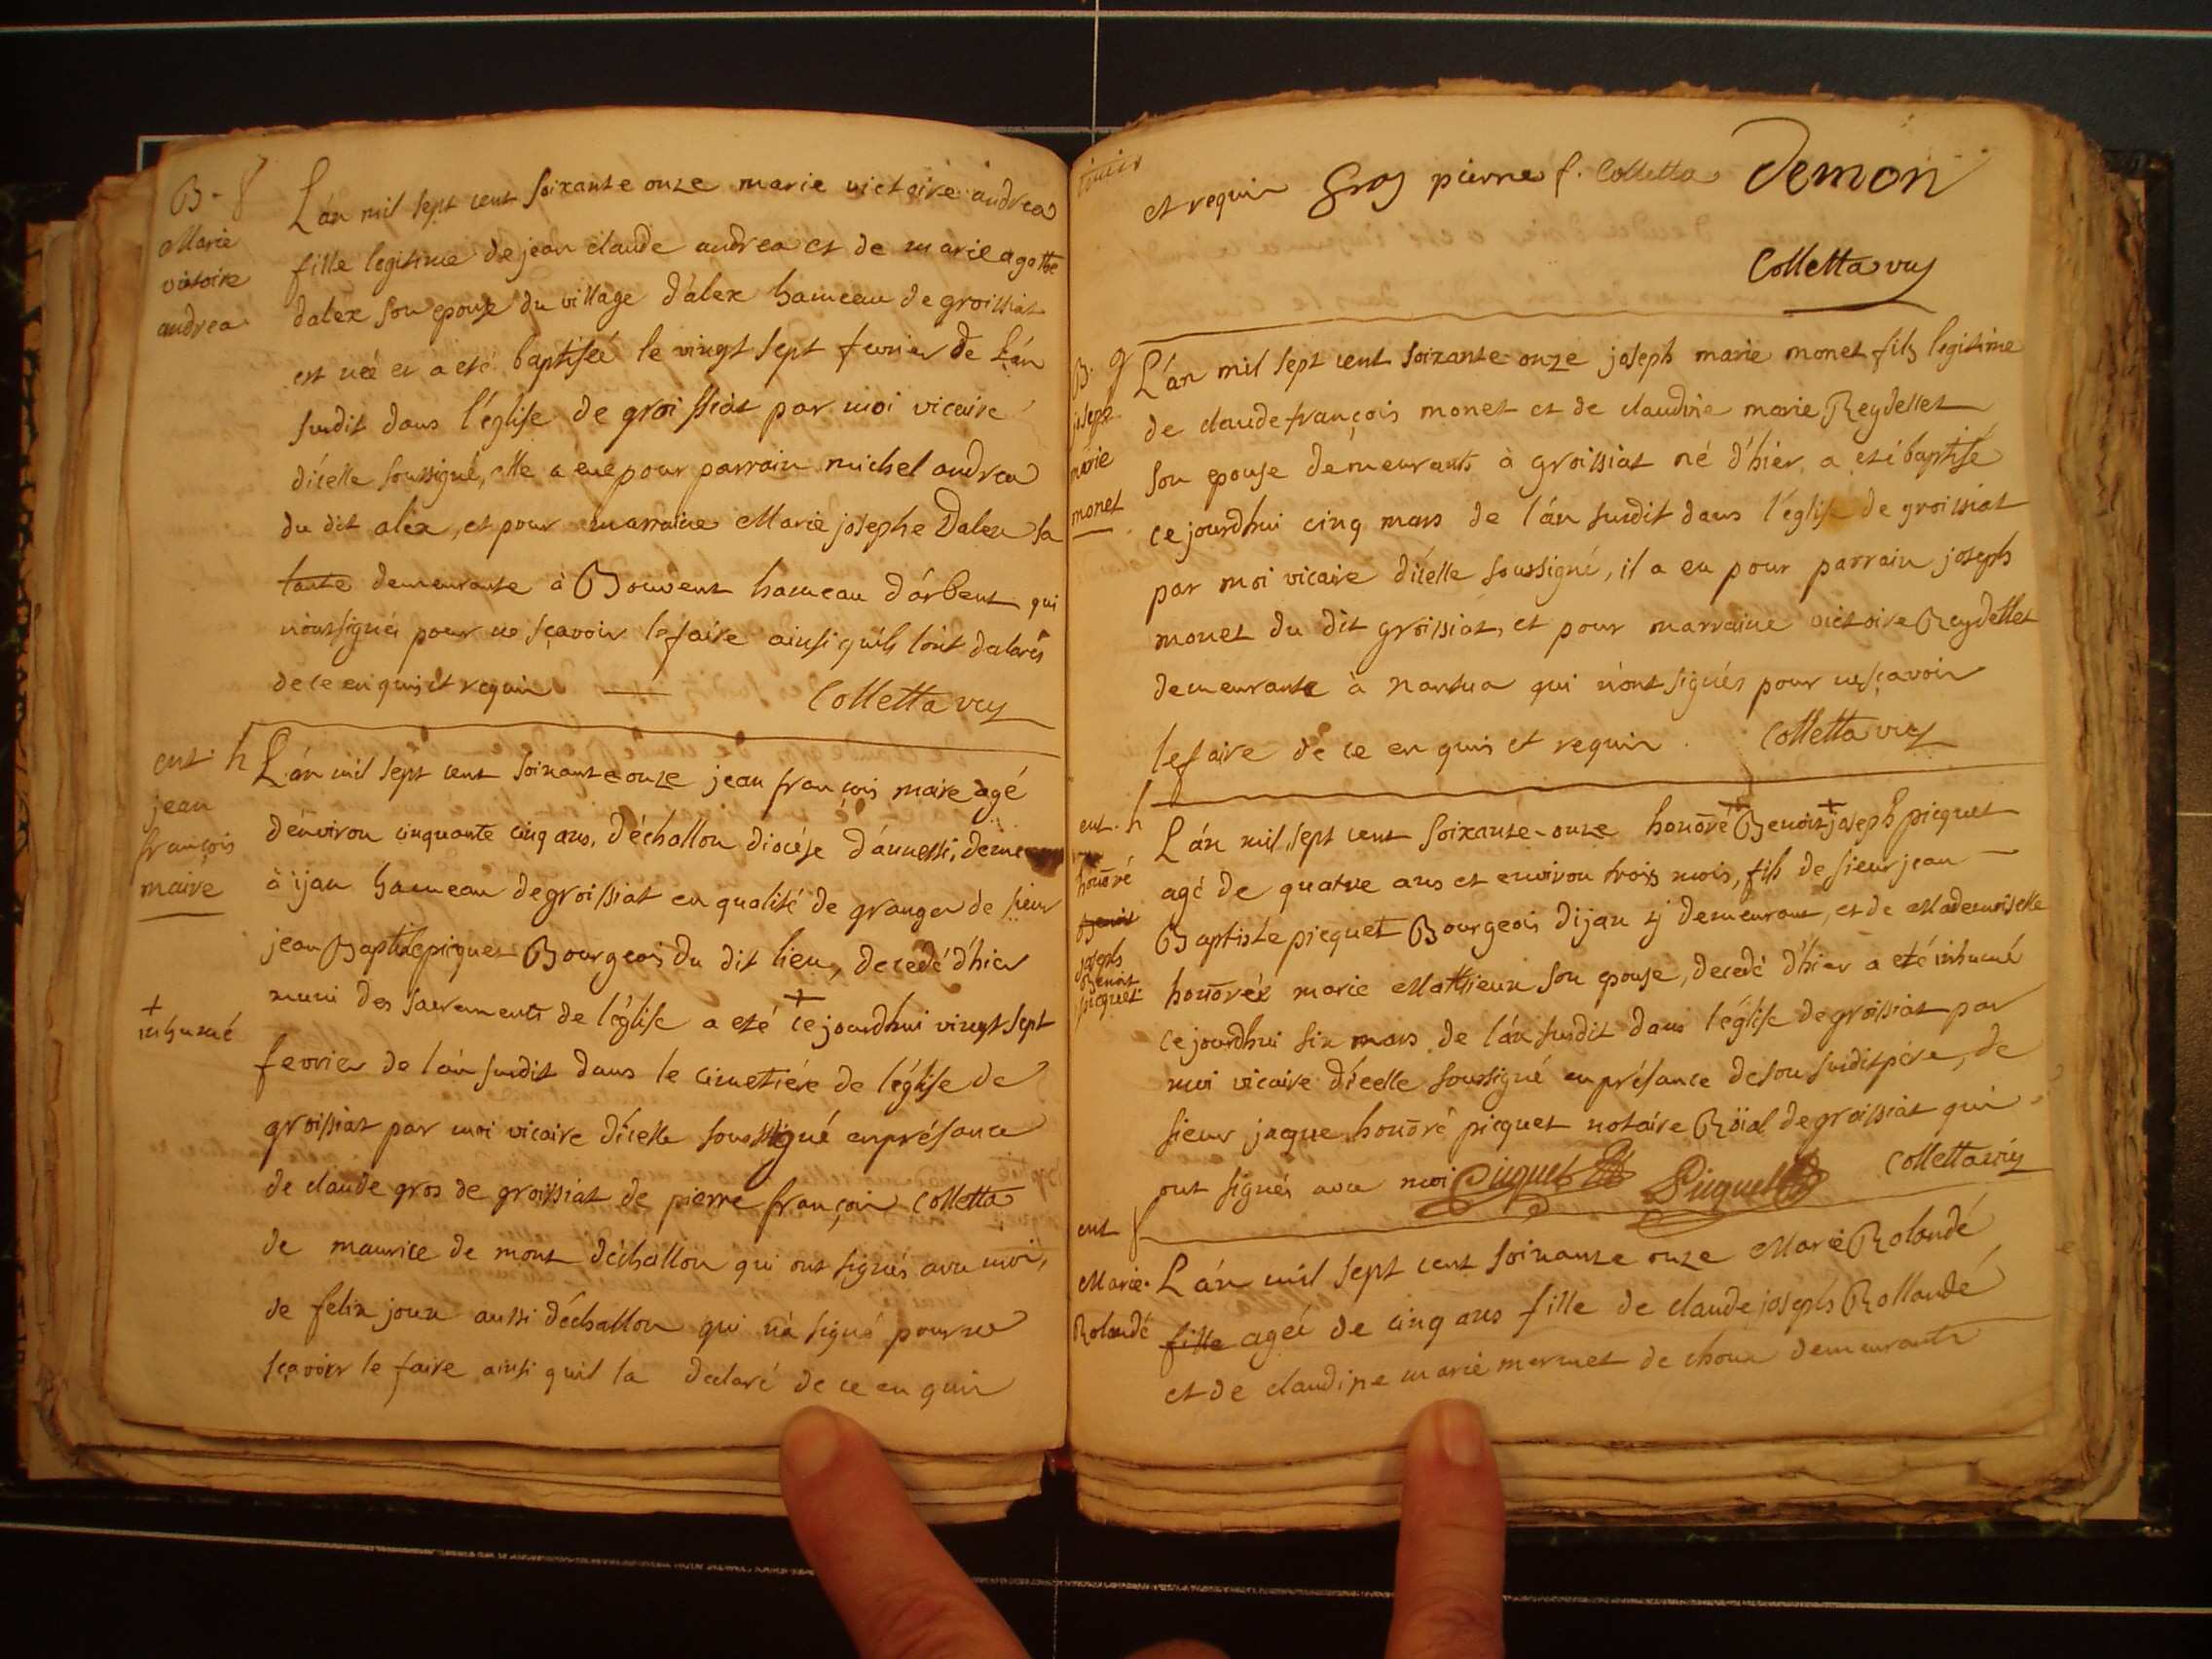 B - f
Marie
victoire
andrea
L'an mil sept cent soixante onze marie victoire andrea
fille legitime de jean claude andrea et de marie agathe
dalex son epouse du village d'alex hameau de groissiat
est née et a eté baptiseé le vingt sept fevrier de l'an
susdit dans l'église de groissiat par moi vicaire
d'icelle soussigné, elle a eue pour parrain michel andrea
du dit alex, et pour marraine Marie josephe Dalex sa
tante demeurante à Bouvent hameau d'arbent qui
n'ont signés pour ne sçavoir le faire ainsi qu'ils l'ont declarés
de ce enquis et requis Colletta vic
ent. h
jean
françois
maire
+
inhumé
L'an mil sept cent soixante onze jean françois maire agé
d'environ cinquante cinq ans, d'échallon diocése d'annessi,
à ijan hameau de groissiat en qualité de granger de sieur
jean Baptiste picquet Bourgeois du dit lieu, decedé d'hier
muni des sacrements de l'église a eté + ce jourdhui vingt sept
fevrier de l'an susdit dans le cimetiére de l'église de
groissiat par moi vicaire d'icelle soussigné en présance
de claude gros de groissiat de pierre françois Colletta
de maurice de mont d'échallon qui ont signés avec moi,
de felix joux aussi d'échallon qui n'a signé pour ne
sçavoir le faire ainsi quil la declaré de ce en quis
et requis Gros pierre f. Colletta Demon
Colletta vic
B. g
joseph
marie
monet
L'an mil sept cent soixante onze joseph marie monet fils legitime
de claude françois monet et de claudine marie Reydellet
son epouse demeurants à groissiat né d'hier, a eté baptisé
ce jourdhui cinq mars de l'an susdit dans l'église de groissiat
par moi vicaire d'icelle soussigné, il a eu pour parrain joseph
monet du dit groissiat, et pour marraine victoire Reydellet
demeurante à nantua qui n'ont signés pour ne sçavoir
le faire de ce enquis et requis. Colletta vic
ent. h
honoré
Benoit
joseph
Benoit
picquet
L'an mil sept cent soixante-onze honoré + Benoit + joseph picquet
agé de quatre ans et environ trois mois, fils de sieur jean
Baptiste picquet Bourgeois dijan ij demeurant, et de Mademoiselle
honoréé marie Mathieux son epouse, decedé d'hier a eté inhumé
ce jourdhui six mars de l'an susdit dans l'église de groissiat par
moi vicaire d'icelle soussigné en présance de son susdit pére, de
sieur jaque honoré picquet notaire Roïal de groissiat qui
ont signés avec moi Picquet Picquet Colletta vic
ent f
Marie
Rolandé
L'an mil sept cent soixante onze Marie Rolandé
fille ageé de cinq ans fille de claude joseph Rollandé
et de claudine marie mermet de choux demeurants